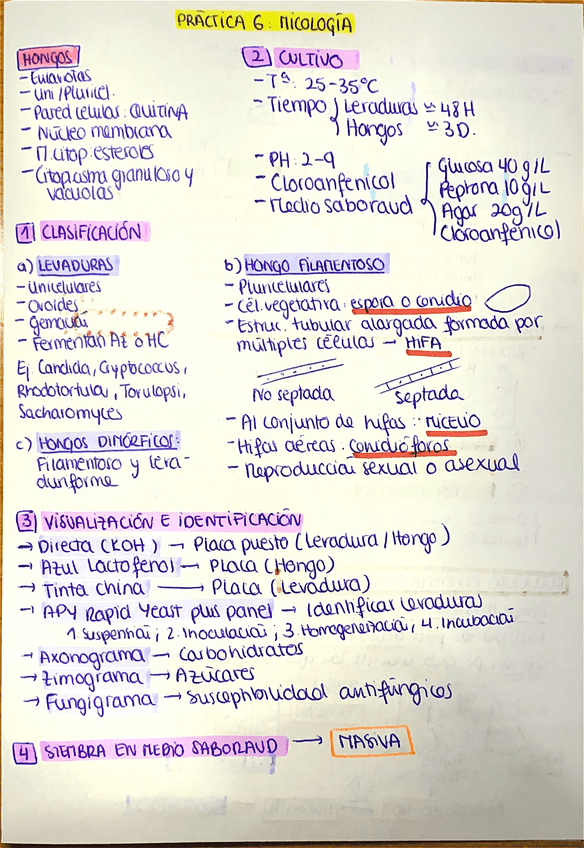 PRÁCTICA 6: MICOLOGÍA
HONGOS
- Eucariotas
- Uni/Pluricel.
- Pared celular: QUITINA
- Núcleo membrana
- M.citop: esteroles
- Citoplasma granuloso y
vacuolas
2 CULTIVO
- Tª: 25-35ºC
- Tiempo Levaduras ≃ 48H
Hongos ≃ 3D.
- PH: 2-9
- Cloroanfenicol
- Medio saboraud
Glucosa 40 g/L
Peptona 10 g/L
Agar 20g/L
Cloroanfenicol
1 CLASIFICACIÓN
a) LEVADURAS
- Unicelulares
- Ovoides
- Gemación
- Fermentan Az o HC
Ej. Candida, Cryptococcus,
Rhodotortula, Torulopsi,
Sacharomyces
c) HONGOS DIMÓRFICOS:
Filamentoso y leva-
duriforme
b) HONGO FILAMENTOSO
- Pluricelulares
- Cél. vegetativa: espora o conidio
- Estruc. tubular alargada formada por
múltiples células → HIFA
No septada
Septada
- Al conjunto de hifas: MICELIO
- Hifas aéreas: conidióforos
- Reproducción sexual o asexual
3 VISUALIZACIÓN E IDENTIFICACIÓN
→ Directa (KOH) → Placa puesto (Levadura/Hongo)
→ Azul Lactofenol → Placa (Hongo)
→ Tinta china → Placa (Levadura)
→ APY Rapid Yeast plus panel → Identificar levaduras
1. Suspensión; 2. Inoculación; 3. Homogeneización; 4. Incubación
→ Axonograma → Carbohidratos
→ Zimograma → Azúcares
→ Fungigrama → Susceptibilidad antifúngicos
4 SIEMBRA EN MEDIO SABORAUD → MASIVA